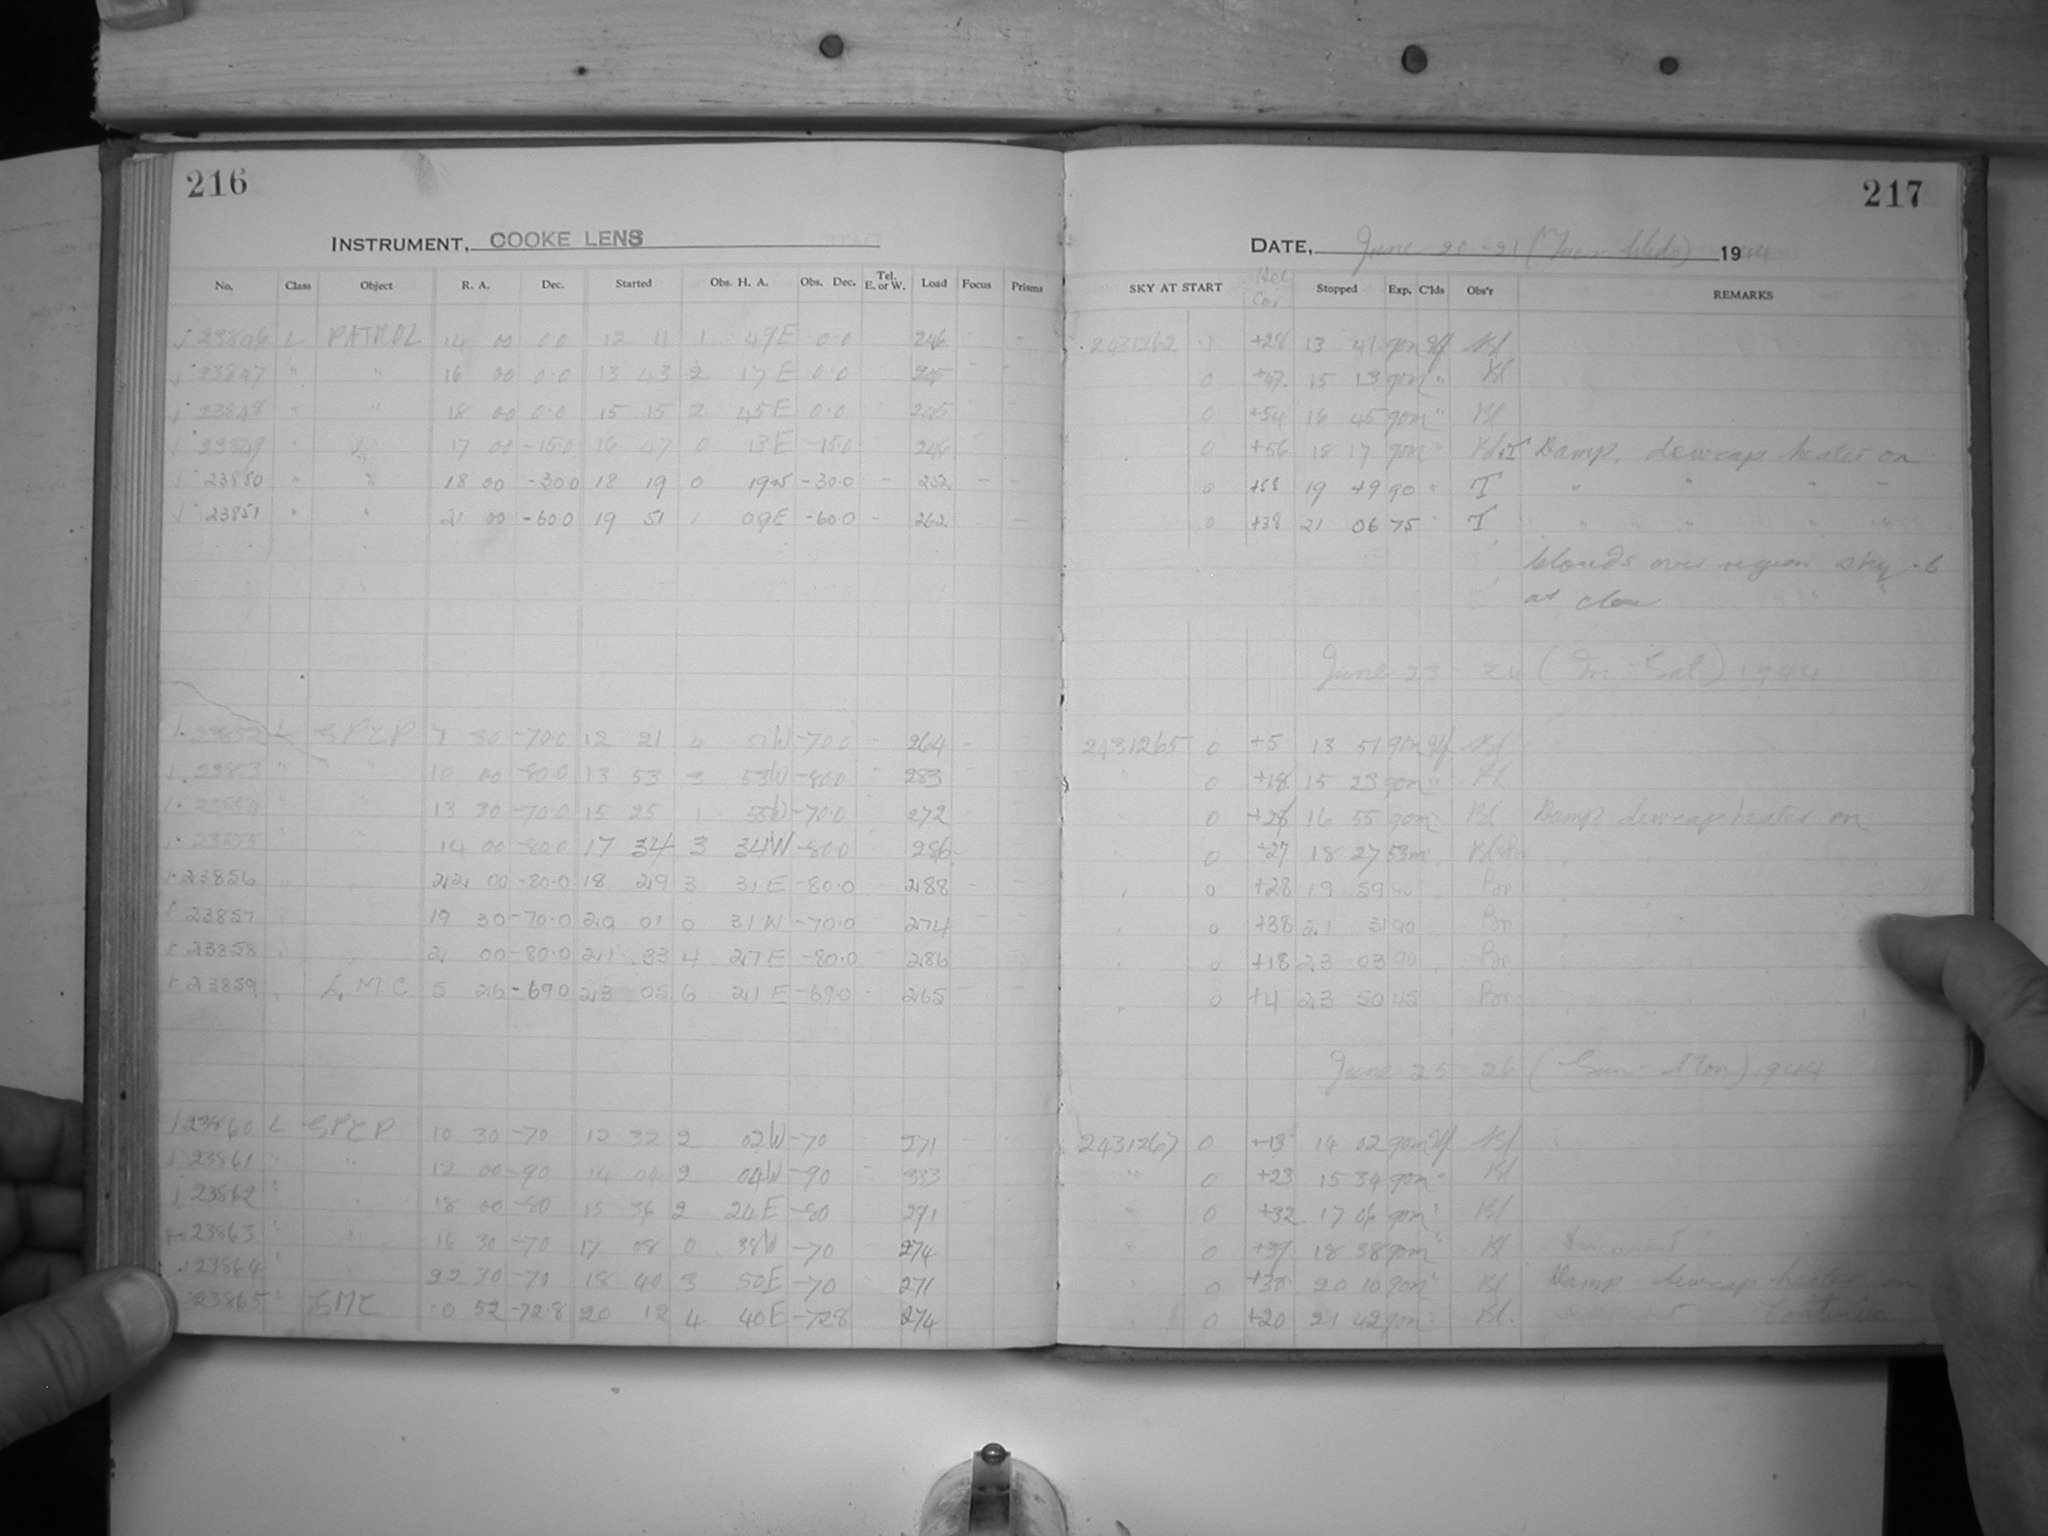 216
INSTRUMENT, COOKE LENS
No. Class Object R. A. Dec. Started Obs. H. A. Obs. Dec. Tel. E. or W. Load Focus Prisms
23846 L PATROL 14 00 0.0 12 11 1 49E 0.0 246
23847 " " 16 00 0.0 13 43 2 17E 0.0 245
23848 " " 18 00 0.0 15 15 2 45E 0.0 245
23849 " 17 00 -15.0 16 47 0 13E -15.0 246
23850 " 18 00 -30.0 18 19 0 -30.0 - 252 - -
23851 " " 21 00 -60.0 19 51 1 09E -60.0 - 262
23852 L SPCP 7 30 -70.0 12 21 4 51W -70.0 264
23853 " " 10 00 -80.0 13 53 3 53W -80.0 283
23854 " " 13 30 -70.0 15 25 1 55W -70.0 272
23855 14 00 -80.0 17 34 3 34W -80.0 286
23856 22 00 -80.0 18 29 3 31E -80.0 288
23857 19 30 -70.0 20 01 0 31W -70.0 274
23858 2 00 -80.0 21 33 4 27E -80.0 286
23859 L.M.C 5 26 -69.0 23 05 6 21E -69.0 265
23860 L SPCP 10 30 -70 12 32 2 02W -70 271
23861 " " 12 00 -90 14 04 2 04W -90 333
23862 " " 18 00 -80 15 36 2 24E -80 291
23863 " " 16 30 -70 17 08 0 38W -70 274
23864 " 22 30 -70 18 40 3 50E -70 271
23865 " SMC 0 52 -72.8 20 12 4 40E -72.8 274
217
DATE, June 20-21 (Tues-Weds) 1944
SKY AT START Hel Cor Stopped Exp. C'lds Obs'r REMARKS
2431262 +28 13 41 90m Bl
0 +47 15 13 90m " Bl
0 +54 16 45 90m " Bl
0 +56 18 17 90m " Bl+T Damp. dewcap heater on
0 +58 19 49 90 " T " " " "
0 +38 21 06 75 T " " " "
Clouds over region sky .6
at close
June 23-24 (Fri-Sat) 1944
2431265 0 +5 13 51 90m Bl
" 0 +18 15 23 90m " Bl
0 +28 16 55 90m Bl Damp. dewcap heater on
0 +27 18 27 53m
0 +28 19 59 90 Br
0 +38 21 31 90 Br
0 +18 23 03 90 Br
0 +4 23 50 45 Br
June 25-26 (Sun-Mon) 1944
2431267 0 +13 14 02 90m Bl
" 0 +23 15 34 90m " Bl
" 0 +32 17 06 90m " Bl
" 0 +37 18 38 90m " Bl
0 20 10 90m " Bl Damp dewcap heater on
0 +20 21 42 90m Bl. Continue